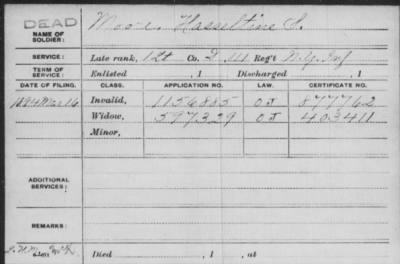 DEAD
NAME OF SOLDIER: Moore, Hasseltine S.
SERVICE: Late rank, Co. D, 111 Reg't N.Y. Inf
TERM OF SERVICE: Enlisted , 1 Discharged , 1
DATE OF FILING. CLASS. APPLICATION NO. LAW. CERTIFICATE NO.
Mar 16 Invalid, 1156885 877762
Widow, 597329 403411
Minor,
ADDITIONAL SERVICES:
REMARKS:
Died , 1 , at